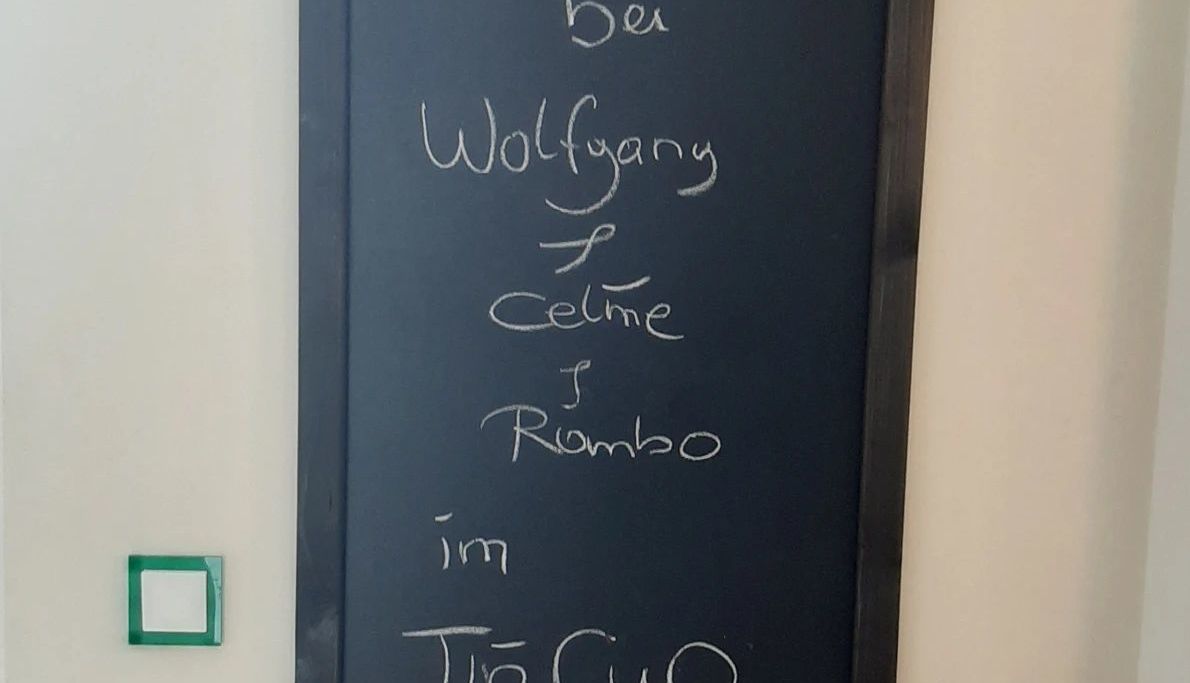 bei
Wolfgang
&
Celine
&
Rambo
im